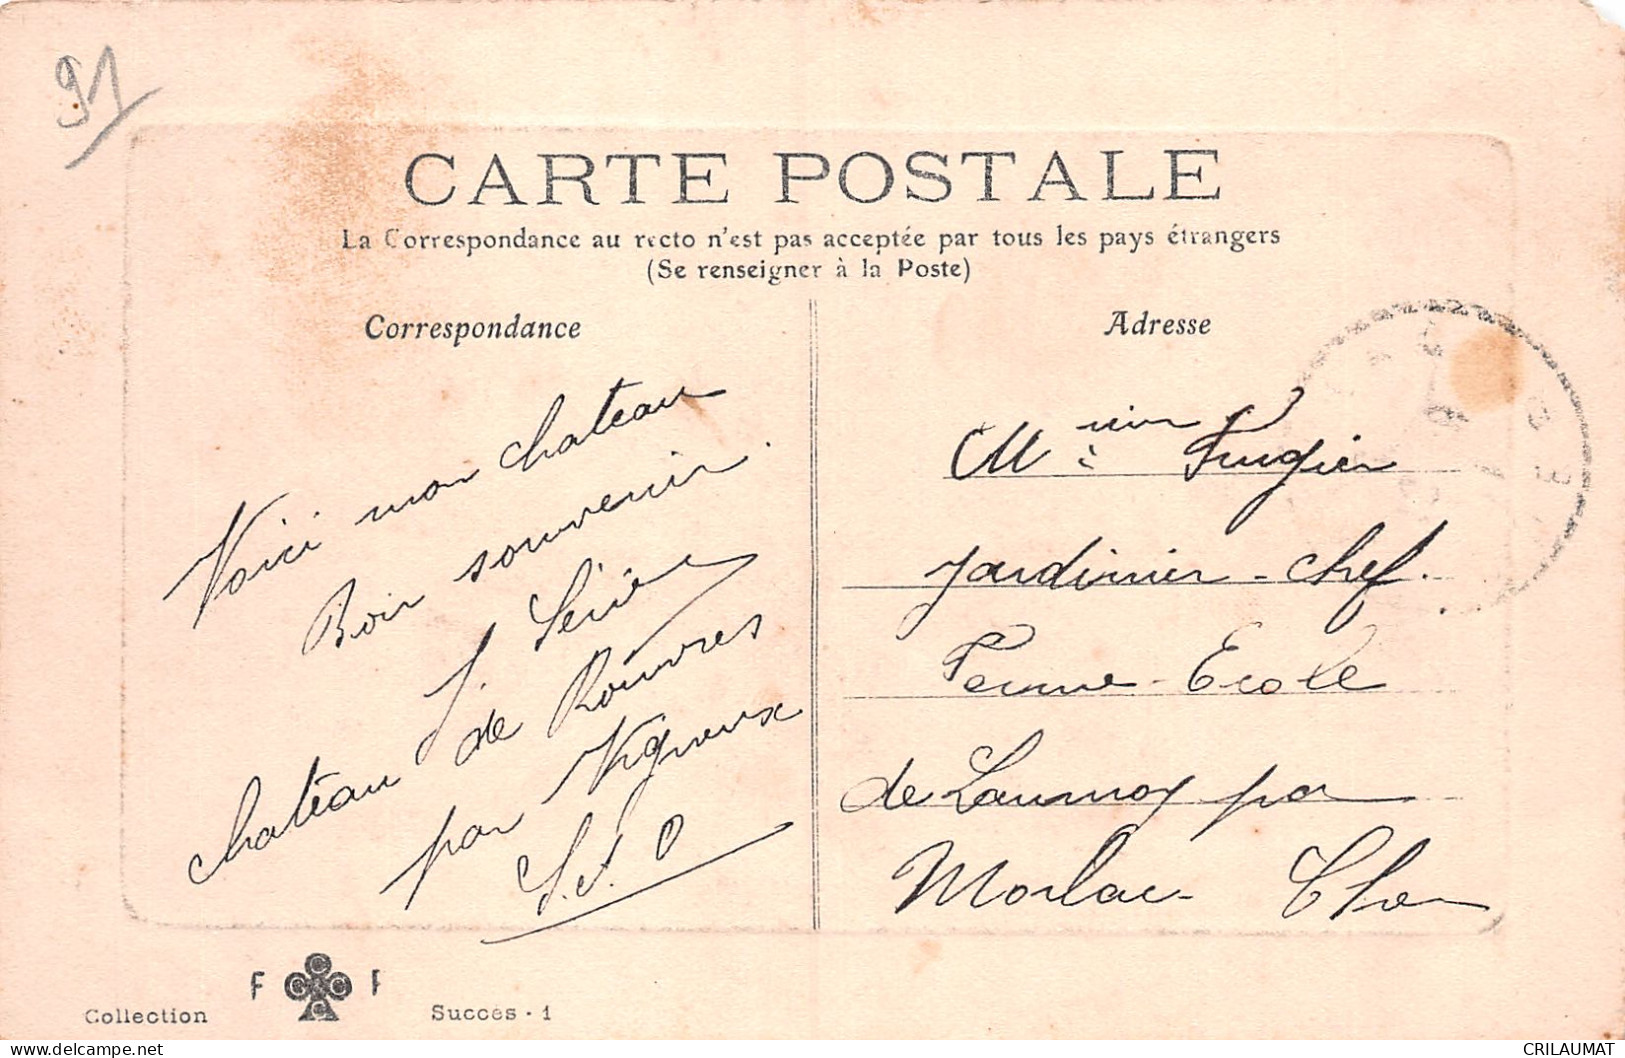 91
CARTE POSTALE
La Correspondance au recto n'est pas acceptée par tous les pays étrangers
(Se renseigner à la Poste)
Correspondance
Voici mon chateau
Bon souvenir.
J.
chateau de Rouvres
par Vigneux
S. et O
Adresse
Jardinier-chef.
Ferme-Ecole
de Launoy par
Morlac Cher
Collection
F CCCC F
Succès - 1
delcampe.net
CRILAUMAT